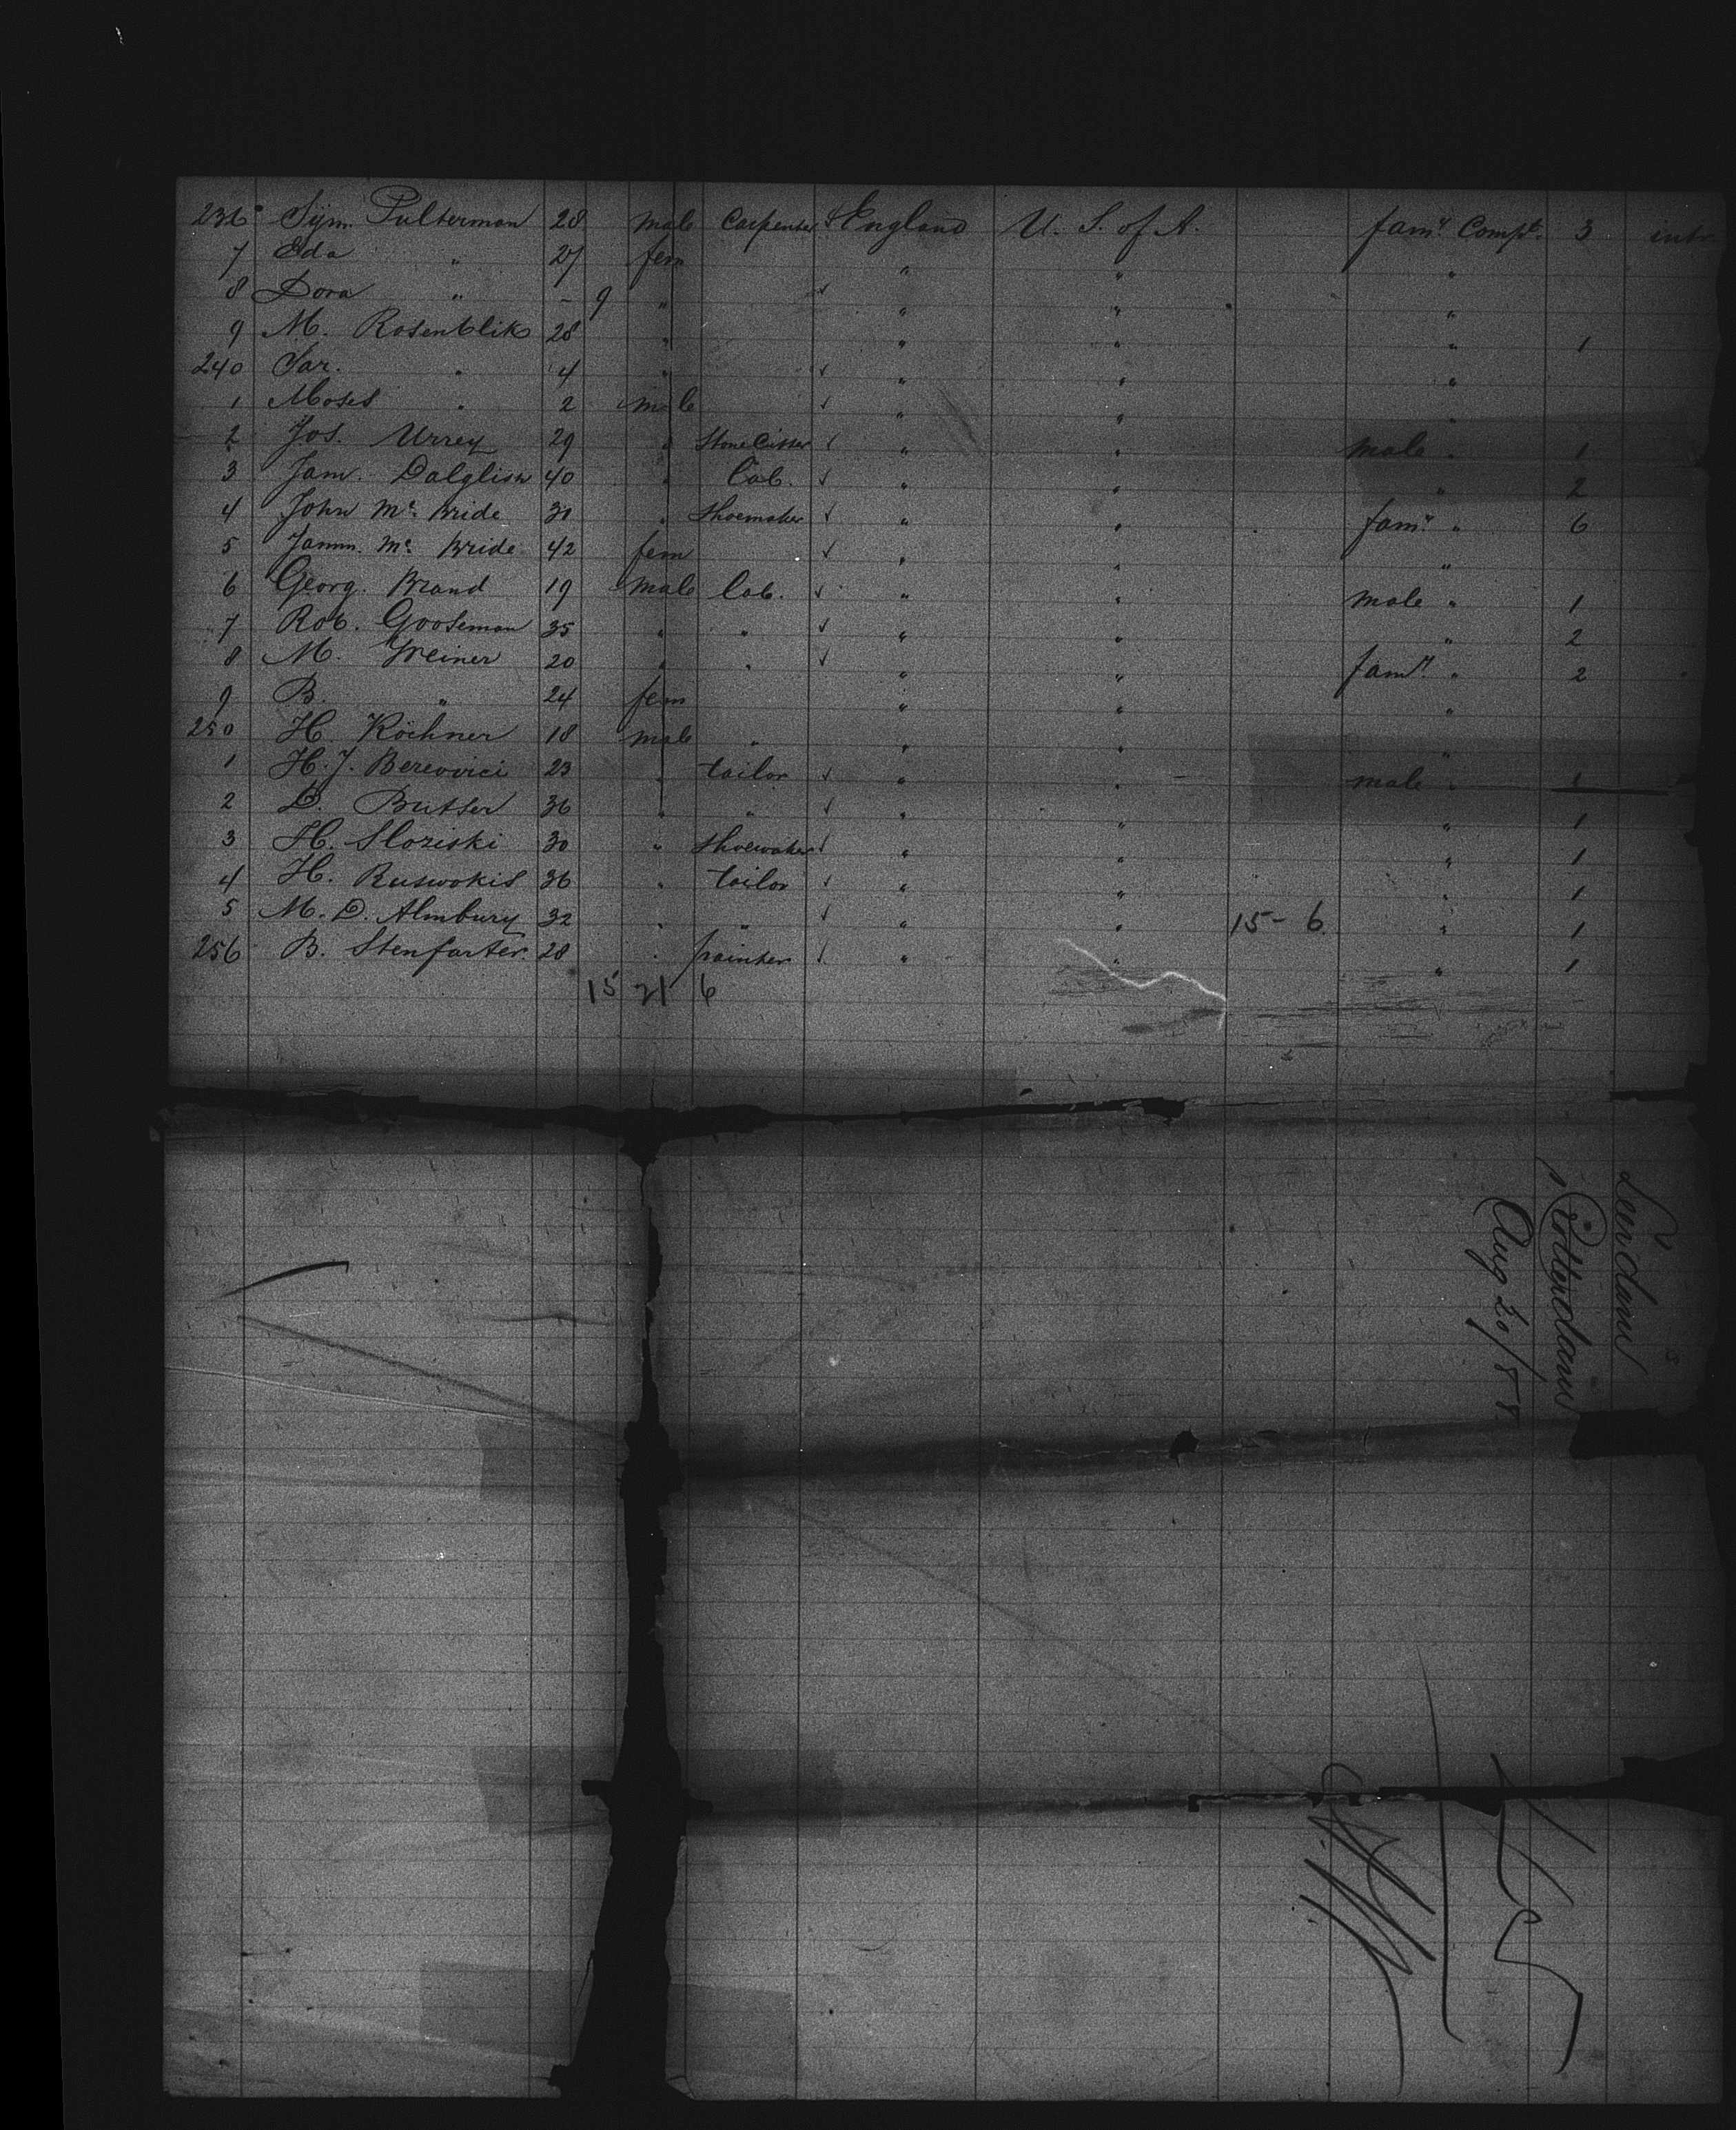 236 Sÿm. Pulterman 28 male Carpenter England U. S. of A. famy Compt. 3
7 Eda " 27 fem " " "
8 Dora " - 9 " " " "
9 M. Rosenblik 28 " " " " 1
240 Sar. " 4 " " " "
1 Moses " 2 male " " "
2 Jos. Urrey 29 " Stone Cutter " " male " 1
3 Jam. Dalglish 40 " Lab. " " " 2
4 John Mc. Bride 30 " Shoemaker " " famy " 6
5 Jamm. Mc Bride 42 fem " " "
6 Georg. Brand 19 male Lab. " " male " 1
7 Rob. Gooseman 35 " " " " " 2
8 M. Greiner 20 " " " " famy. " 2
9 B. " 24 fem " " "
250 H. Köchner 18 male " " " "
1 H. J. Bercovici 23 " tailor " " male " 1
2 D. Butser 36 " " " " " 1
3 H. Sloziski 30 " Shoemaker " " " 1
4 H. Ruswokis 36 " tailor " " " 1
5 M. D. Almbury 32 " " " " 15-6 " 1
256 B. Stenfarter. 28 " painter " " " 1
15 21 6
Rotterdam
Aug 20/88